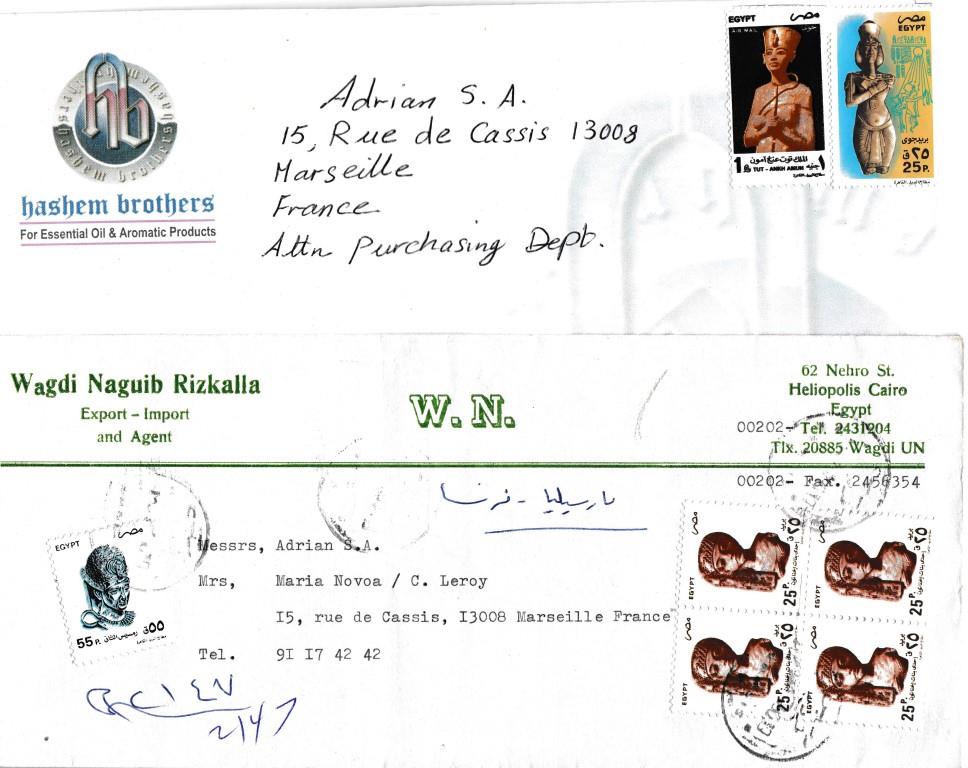 hashem brothers
hb
hashem brothers
For Essential Oil & Aromatic Products
Adrian S. A.
15, Rue de Cassis 13008
Marseille
France
Attn Purchasing Dept.
EGYPT مصر
AIR MAIL
الملك توت عنخ آمون
1 جنيه 1
TUT - ANKH AMUN
مصر
EGYPT
بريد جوى
٢٥ ق
25 P.
Wagdi Naguib Rizkalla
Export - Import
and Agent
W. N.
62 Nehro St.
Heliopolis Cairo
Egypt
00202- Tel. 2431204
Tlx. 20885 Wagdi UN
00202- Fax. 2456354
مارسيليا - فرنسا
EGYPT مصر
55 P. ٥٥ ق
رمسيس الثانى
Messrs, Adrian S.A.
Mrs, Maria Novoa / C. Leroy
I5, rue de Cassis, I3008 Marseille France
Tel. 9I I7 42 42
EGYPT مصر
25 P. ٢٥ ق بريد
EGYPT مصر
25 P. ٢٥ ق بريد
EGYPT مصر
25 P. ٢٥ ق بريد
EGYPT مصر
25 P. ٢٥ ق بريد